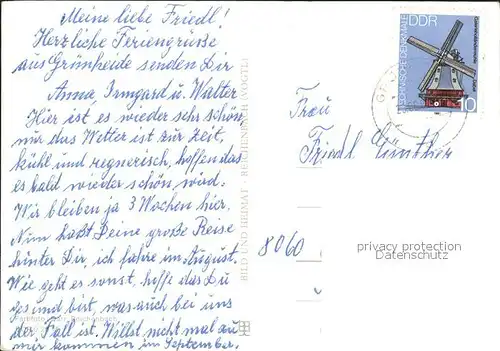 Meine liebe Friedl!
Herzliche Feriengrüsse
aus Grünheide senden Dir
Anna, Irmgard u. Walter
Hier ist es wieder sehr schön,
nur das Wetter ist zur Zeit,
kühl und regnerisch, hoffen das
es bald wieder schön wird.
Wir bleiben ja 3 Wochen hier.
Nun haßt Deine große Reise
hinter Dir, ich fahre im August.
Wie geht es sonst, hoffe das Du
gesund bist, was auch bei uns
der Fall ist. Willst nicht mal zu
mir kommen im September.
BILD UND HEIMAT REICHENBACH (VOGTL)
TECHNISCHE DENKMALE
DDR
10
Frau
Friedl Günther
8060
privacy protection
Datenschutz